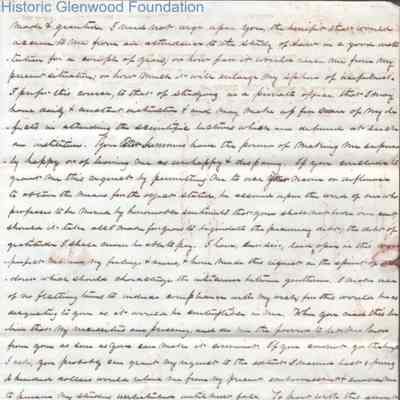 Historic Glenwood Foundation
made & grantin I must not urge upon you the benefit that would
accrue to me from an attendance to the study of Law in a good insti
tution for a couple of years, or how far it would raise me from my
present situation; or how much it will enlarge my sphere of usefulness.
I prefer this course, to that of studying in a private office that I may
have daily & constant instruction & and may make up for some of my de
fects in attending the scientific lectures which are delivered at such
an institution. You have the power of making me
happy or of leaving me unhappy & If you conclude to
grant me this request by permitting me to use your name or influence
to obtain the means for the object stated, be assured upon the word of one who
professes to be moved by honourable sentiments that you shall not lose one cent,
should it take all I made for years to liquidate the pecuniary debt; the debt of
gratitude I shall never be able to pay. I have, dear sir, laid open in this
my feelings & and have made this request in the spirit of
dour which should characterize the intercourse between gentlemen. I make use
of no flattering terms to induce compliance with my wish, for this would be as
disgusting to you as it would be in me. When you
that my necessities are pressing, and do me the favour to let me hear
from you as soon as you can make it convenient. If you cannot go the length
I ask, you probably can grant my request to the extent I
hundred dollars would relieve me from my present embarrassment & enable me
to pursue my studies until next fall. To part with this small